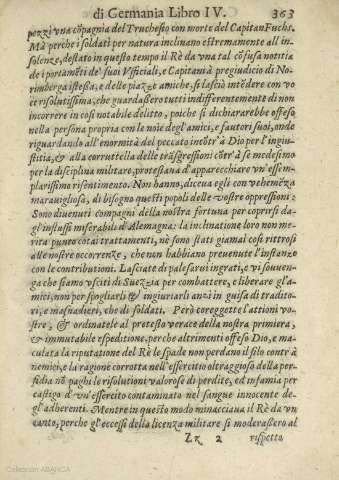 di Germania Libro IV. 363
pezzi vna cõpagnia del Truchesio con morte del Capitan Fuchs.
Mà perche i soldati per natura inclinano estremamente all'in-
solenze, destato in questo tempo il Rè da vna tal cõfusa notitia
de i portamẽti de' suoi Vfficiali, e Capitani à pregiudicio di No-
rimberga istessa, e delle piazze amiche, si lasciò intẽdere con vo
ce risolutissima, che guardassero tutti indifferentemente di non
incorrere in così notabile delitto, poiche si dichiararebbe offeso
nella persona propria con le noie degl'amici, e fautori suoi, onde
riguardando all'enormità del peccato intõtr'à Dio per l'ingiu-
stitia, & alla corruttella delle trãsgressioni cõtr'à se medesimo
per la disciplina militare, protestaua d'apparecchiare vn'essem-
plarissimo risentimento. Non hanno, diceua egli con vehemẽza
marauigliosa, di bisogno questi popoli delle vostre oppressioni:
Sono diuenuti compagni della nostra fortuna per coprirsi da-
gl'influssi miserabili d'Alemagna: la inclinatione loro non me-
rita punto cotai trattamenti, nè sono stati giamai così rittrosi
alle nostre occorrenze, che non habbiano preuenute l'instanze
con le contributioni. Lasciate di palesarui ingrati, e vi souuen-
ga che siamo vsciti di Suezzia per combattere, e liberare gl'a-
mici, non per spogliarli & ingiuriarli anzi in guisa di tradito-
ri, e masnadieri, che di soldati. Però coreggette l'attioni vo-
stre, & ordinatele al protesto verace della nostra primiera,
& immutabile espeditione, perche altrimenti offeso Dio, e ma-
culata la riputatione del Rè le spade non perdano il filo contr'à
nemici, e la ragione corrotta nell'essercito oltraggioso della per-
fidia nõ paghi le risolutioni valorose di perdite, ed infamia per
castigo d'vn'essercito contaminato nel sangue innocente de-
gl'adherenti. Mentre in questo modo minacciaua il Rè da vn
canto, perche gl'eccessi della licenza militare si moderassero al
Zz 2 rispetto
Colección ABANCA